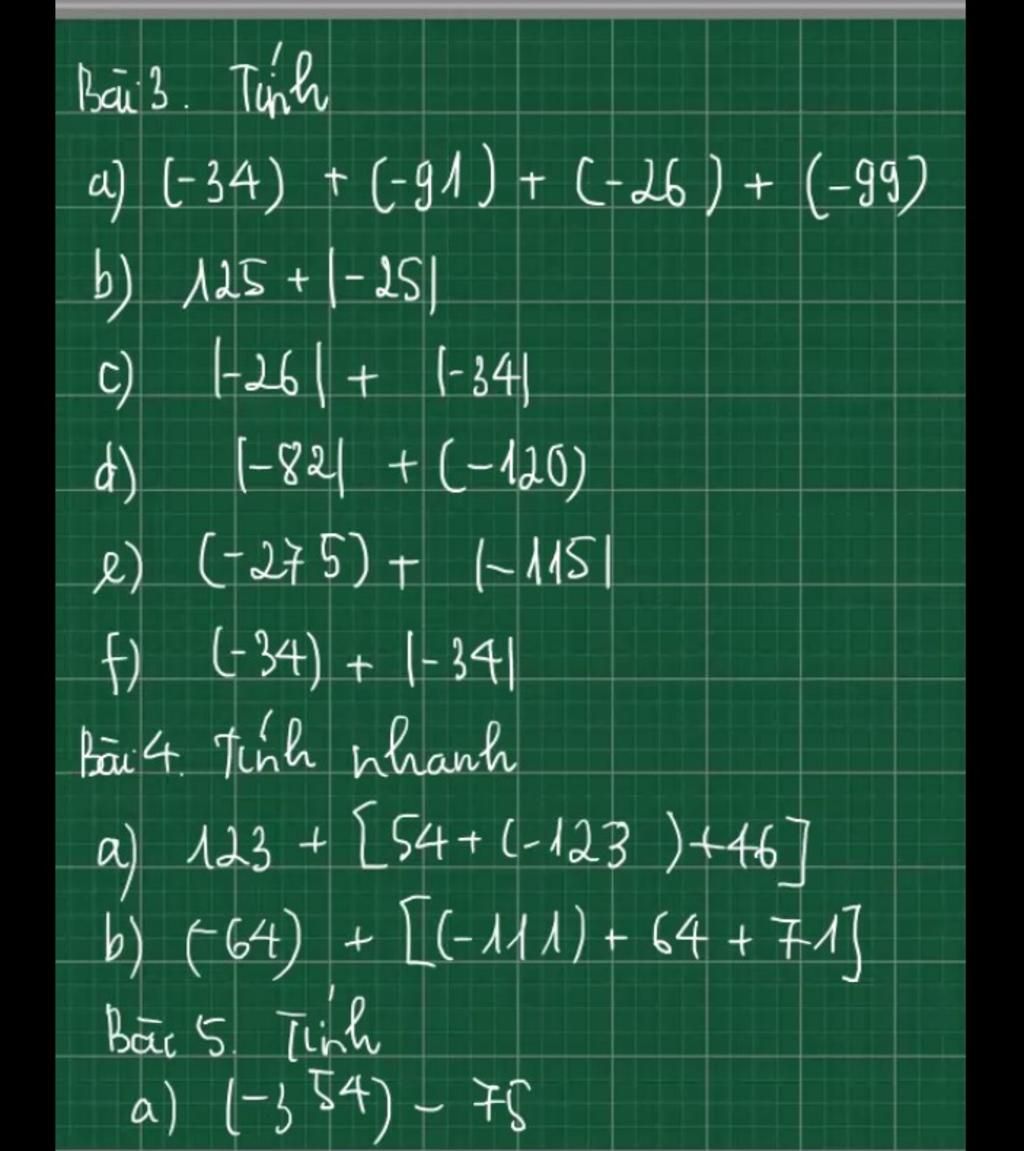 Bài 3. Tính
a) (-34) + (-91) + (-26) + (-99)
b) 125 + |-25|
c) |-26| + |-34|
d) |-82| + (-120)
e) (-275) + |-115|
f) (-34) + |-34|
Bài 4. Tính nhanh
a) 123 + [54 + (-123) + 46]
b) (-64) + [(-111) + 64 + 71]
Bài 5. Tính
a) (-354) - 75